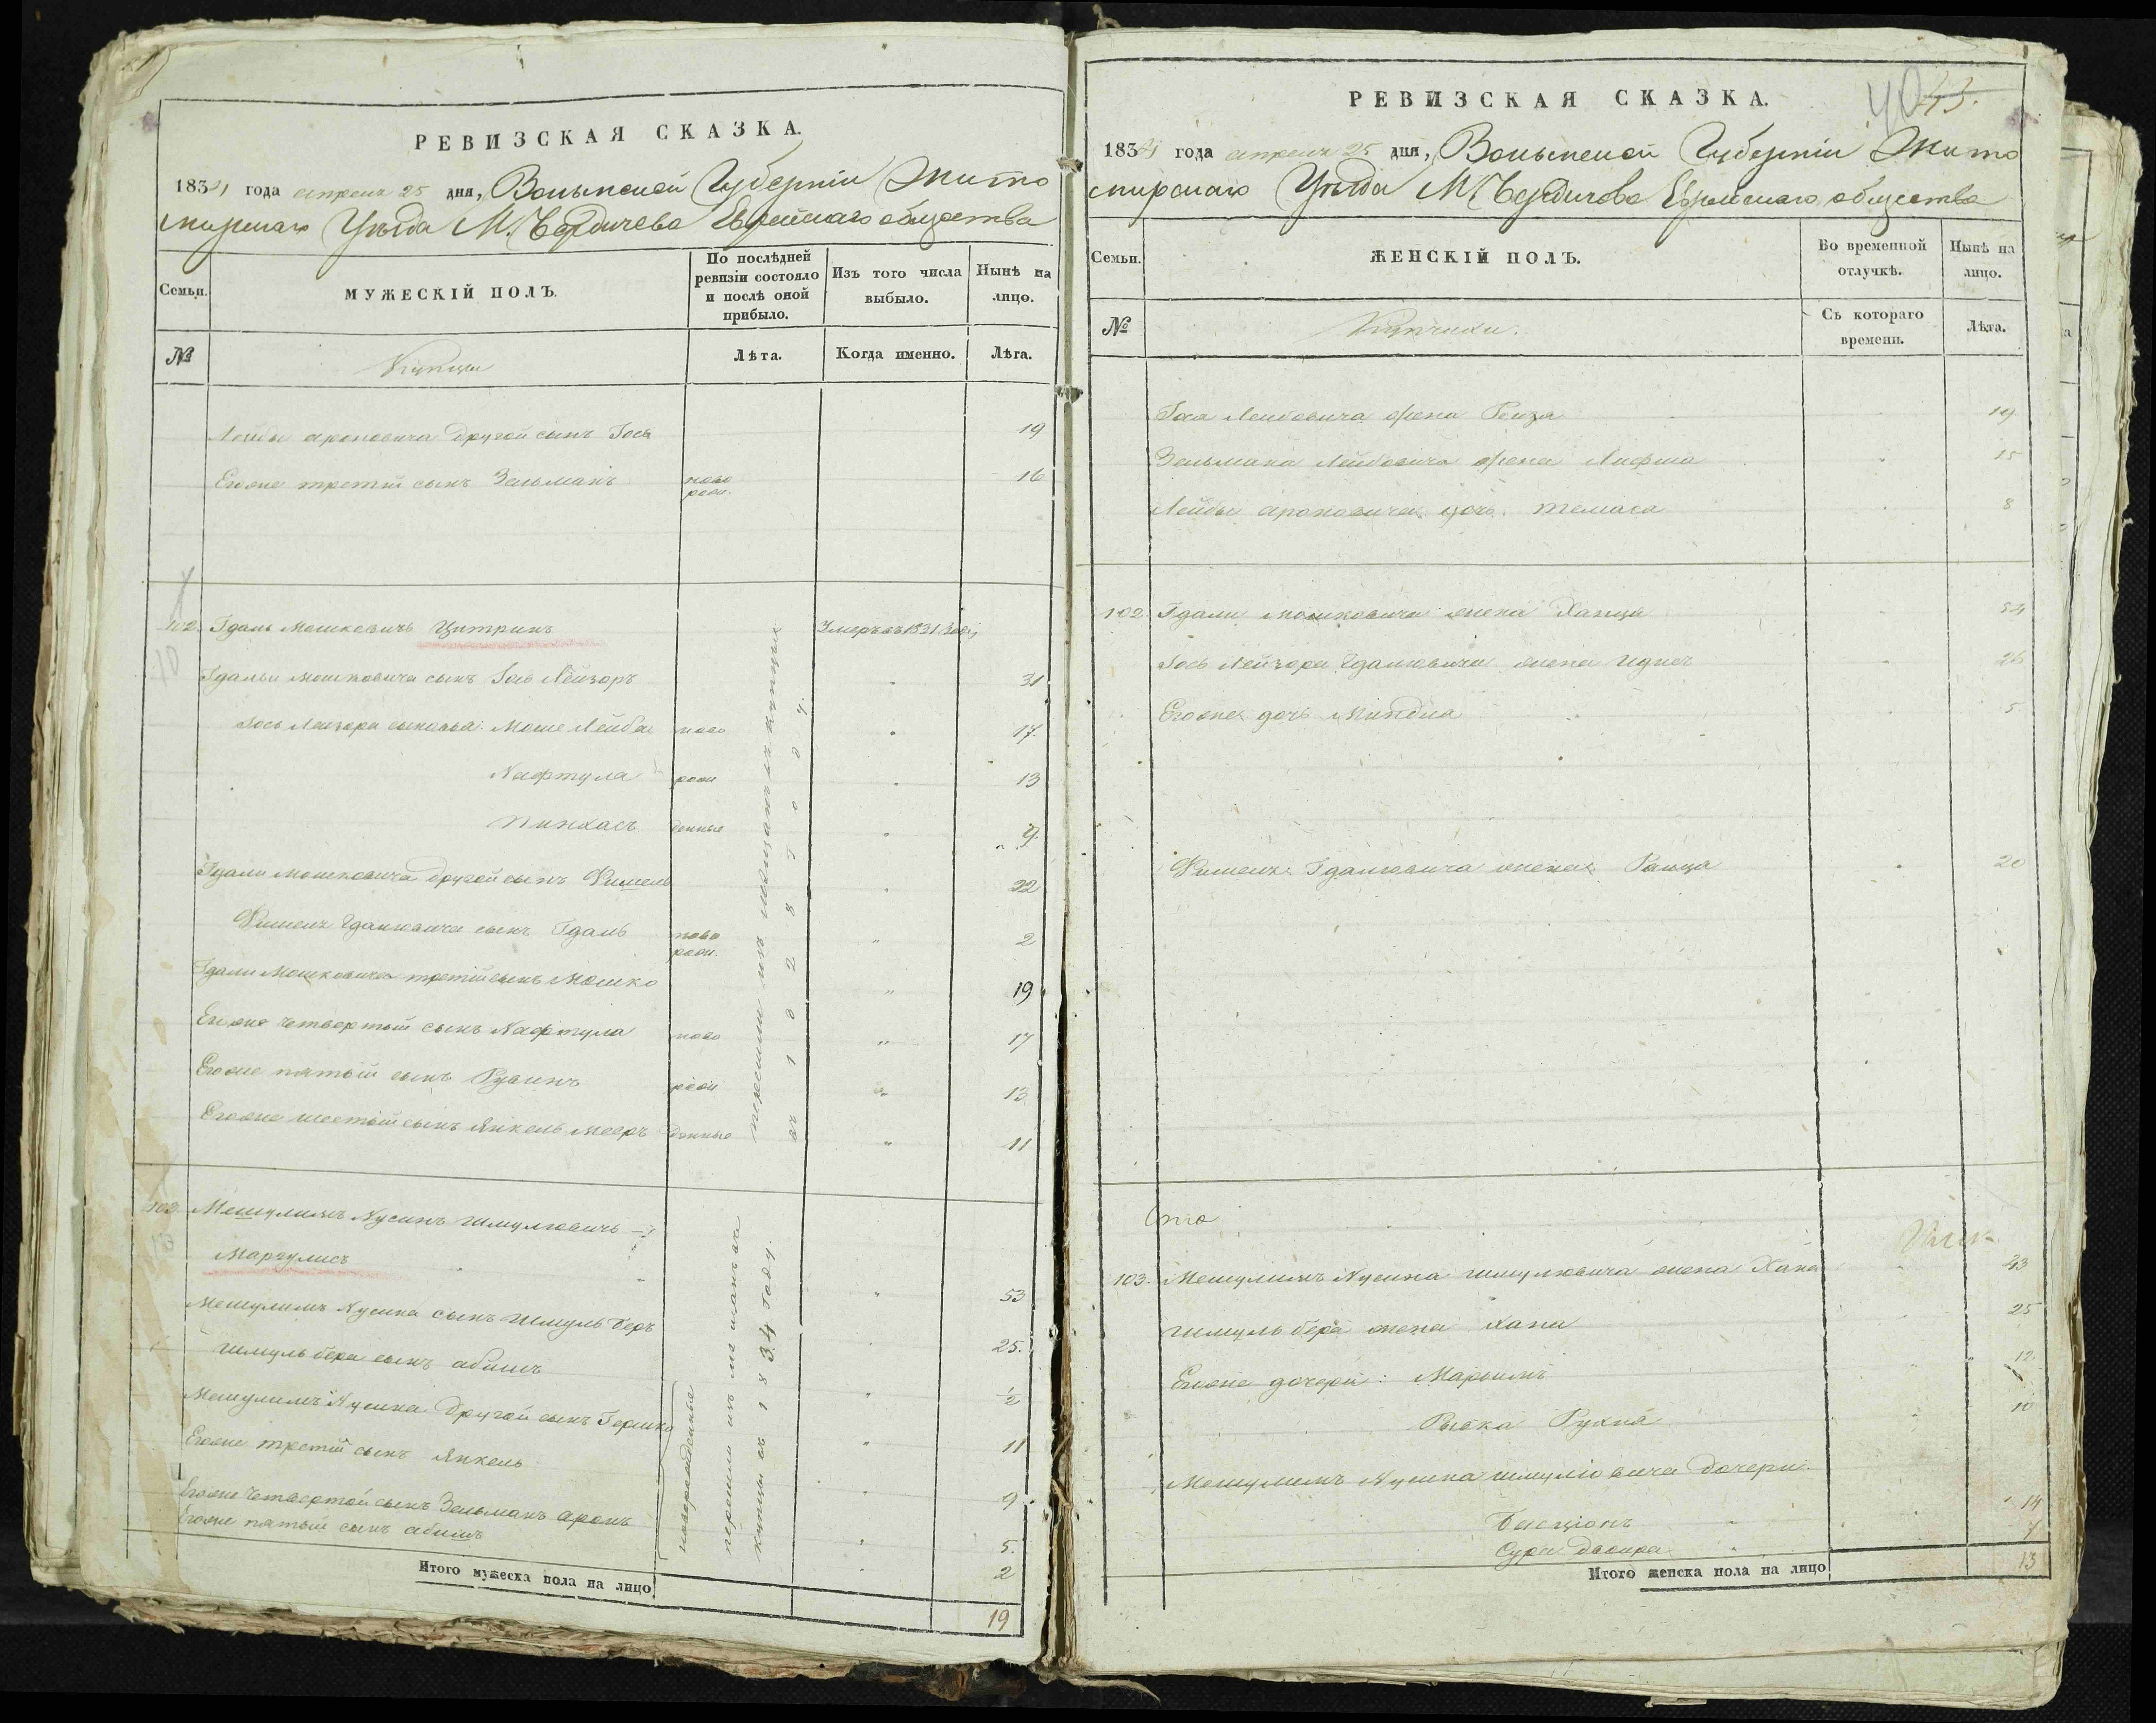 РЕВИЗСКАЯ СКАЗКА.
1834 года апреля 25 дня, Волынской Губерніи Жито
мирскаго Уѣзда М. Бердичева Еврейскаго общества
Семьи.
МУЖЕСКІЙ ПОЛЪ.
По послѣдней
ревизіи состояло
и послѣ оной
прибыло.
Изъ того числа
выбыло.
Нынѣ на
лицо.
№
Купцы
Лѣта.
Когда именно.
Лѣта.
Лейбы Ароновича другой сынъ Іось 19
Егоже третій сынъ Зельманъ ново 16
рож.
102. Гдаль Мошковичъ Цитринъ Умеръ въ 1831 году
Гдальи Мошковича сынъ Іось Лейзоръ 31
Іось Лейзора сыновья: Моше Лейба ново 17.
Нафтула рож 13
Пинхасъ денные 9.
Гдали Мошковича другой сынъ Фишель 22
Фишеля Гдалювича сынъ Гдаль ново 2
рож.
Гдали Мошковича третій сынъ Мошко 19
Егоже четвертый сынъ Нафтула ново 17
Егоже пятый сынъ Рувинъ рож 13
Егоже шестый сынъ Янкель Мееръ денные 11
перешли изъ мещанъ въ купцы
въ 1828 году.
103. Мешулимъ Нусинъ Шмулювичъ
Маргулисъ 53
Мешулимъ Нусина сынъ Шмуль Беръ 25.
Шмуль Бера сынъ Абишъ ½
Мешулимъ Нусина другой сынъ Гершко 11
Егоже третій сынъ Янкель 9
Егоже четвертой сынъ Зельманъ Аронъ 5.
Егоже пятый сынъ Абишъ 2
новорожденные
перешли изъ мещанъ въ
купцы съ 1834 году.
Итого мужеска пола на лицо
19
43.
40
РЕВИЗСКАЯ СКАЗКА.
1834 года апреля 25 дня, Волынской Губерніи Жито
мирскаго Уѣзда М. Бердичева Еврейскаго общества
Семьи.
ЖЕНСКІЙ ПОЛЪ.
Во временной
отлучкѣ.
Нынѣ на
лицо.
№
Купчихи.
Съ котораго
времени.
Лѣта.
Іося Лейбовича жена Рейза 19
Зельмана Лейбовича жена 15
Лейбы Ароновича дочь 8
102. Гдали Мошковича жена Ханця 54
Іось Лейзора Гдалювича жена 26
Егоже дочь Миндля 5.
Фишеля Гдалювича жена 20
103. Мешулимъ Нусина Шмулювича жена Хана 43
Шмуль Бера жена Хана 25
Егоже дочери: Марьимъ 12.
Рывка Рухля 10
Мешулимъ Нусина Шмулювича дочери.
Басціонъ 14
Сура Двойра 7
Итого женска пола на лицо
13